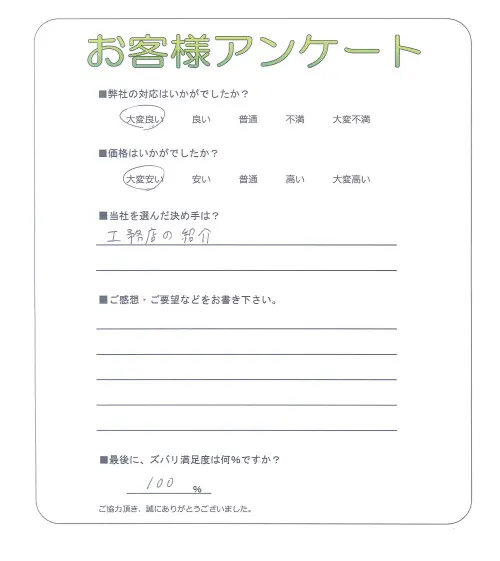 お客様アンケート
■弊社の対応はいかがでしたか？
大変良い 良い 普通 不満 大変不満
■価格はいかがでしたか？
大変安い 安い 普通 高い 大変高い
■当社を選んだ決め手は？
工務店の紹介
■ご感想・ご要望などをお書き下さい。
■最後に、ズバリ満足度は何%ですか？
100 %
ご協力頂き、誠にありがとうございました。